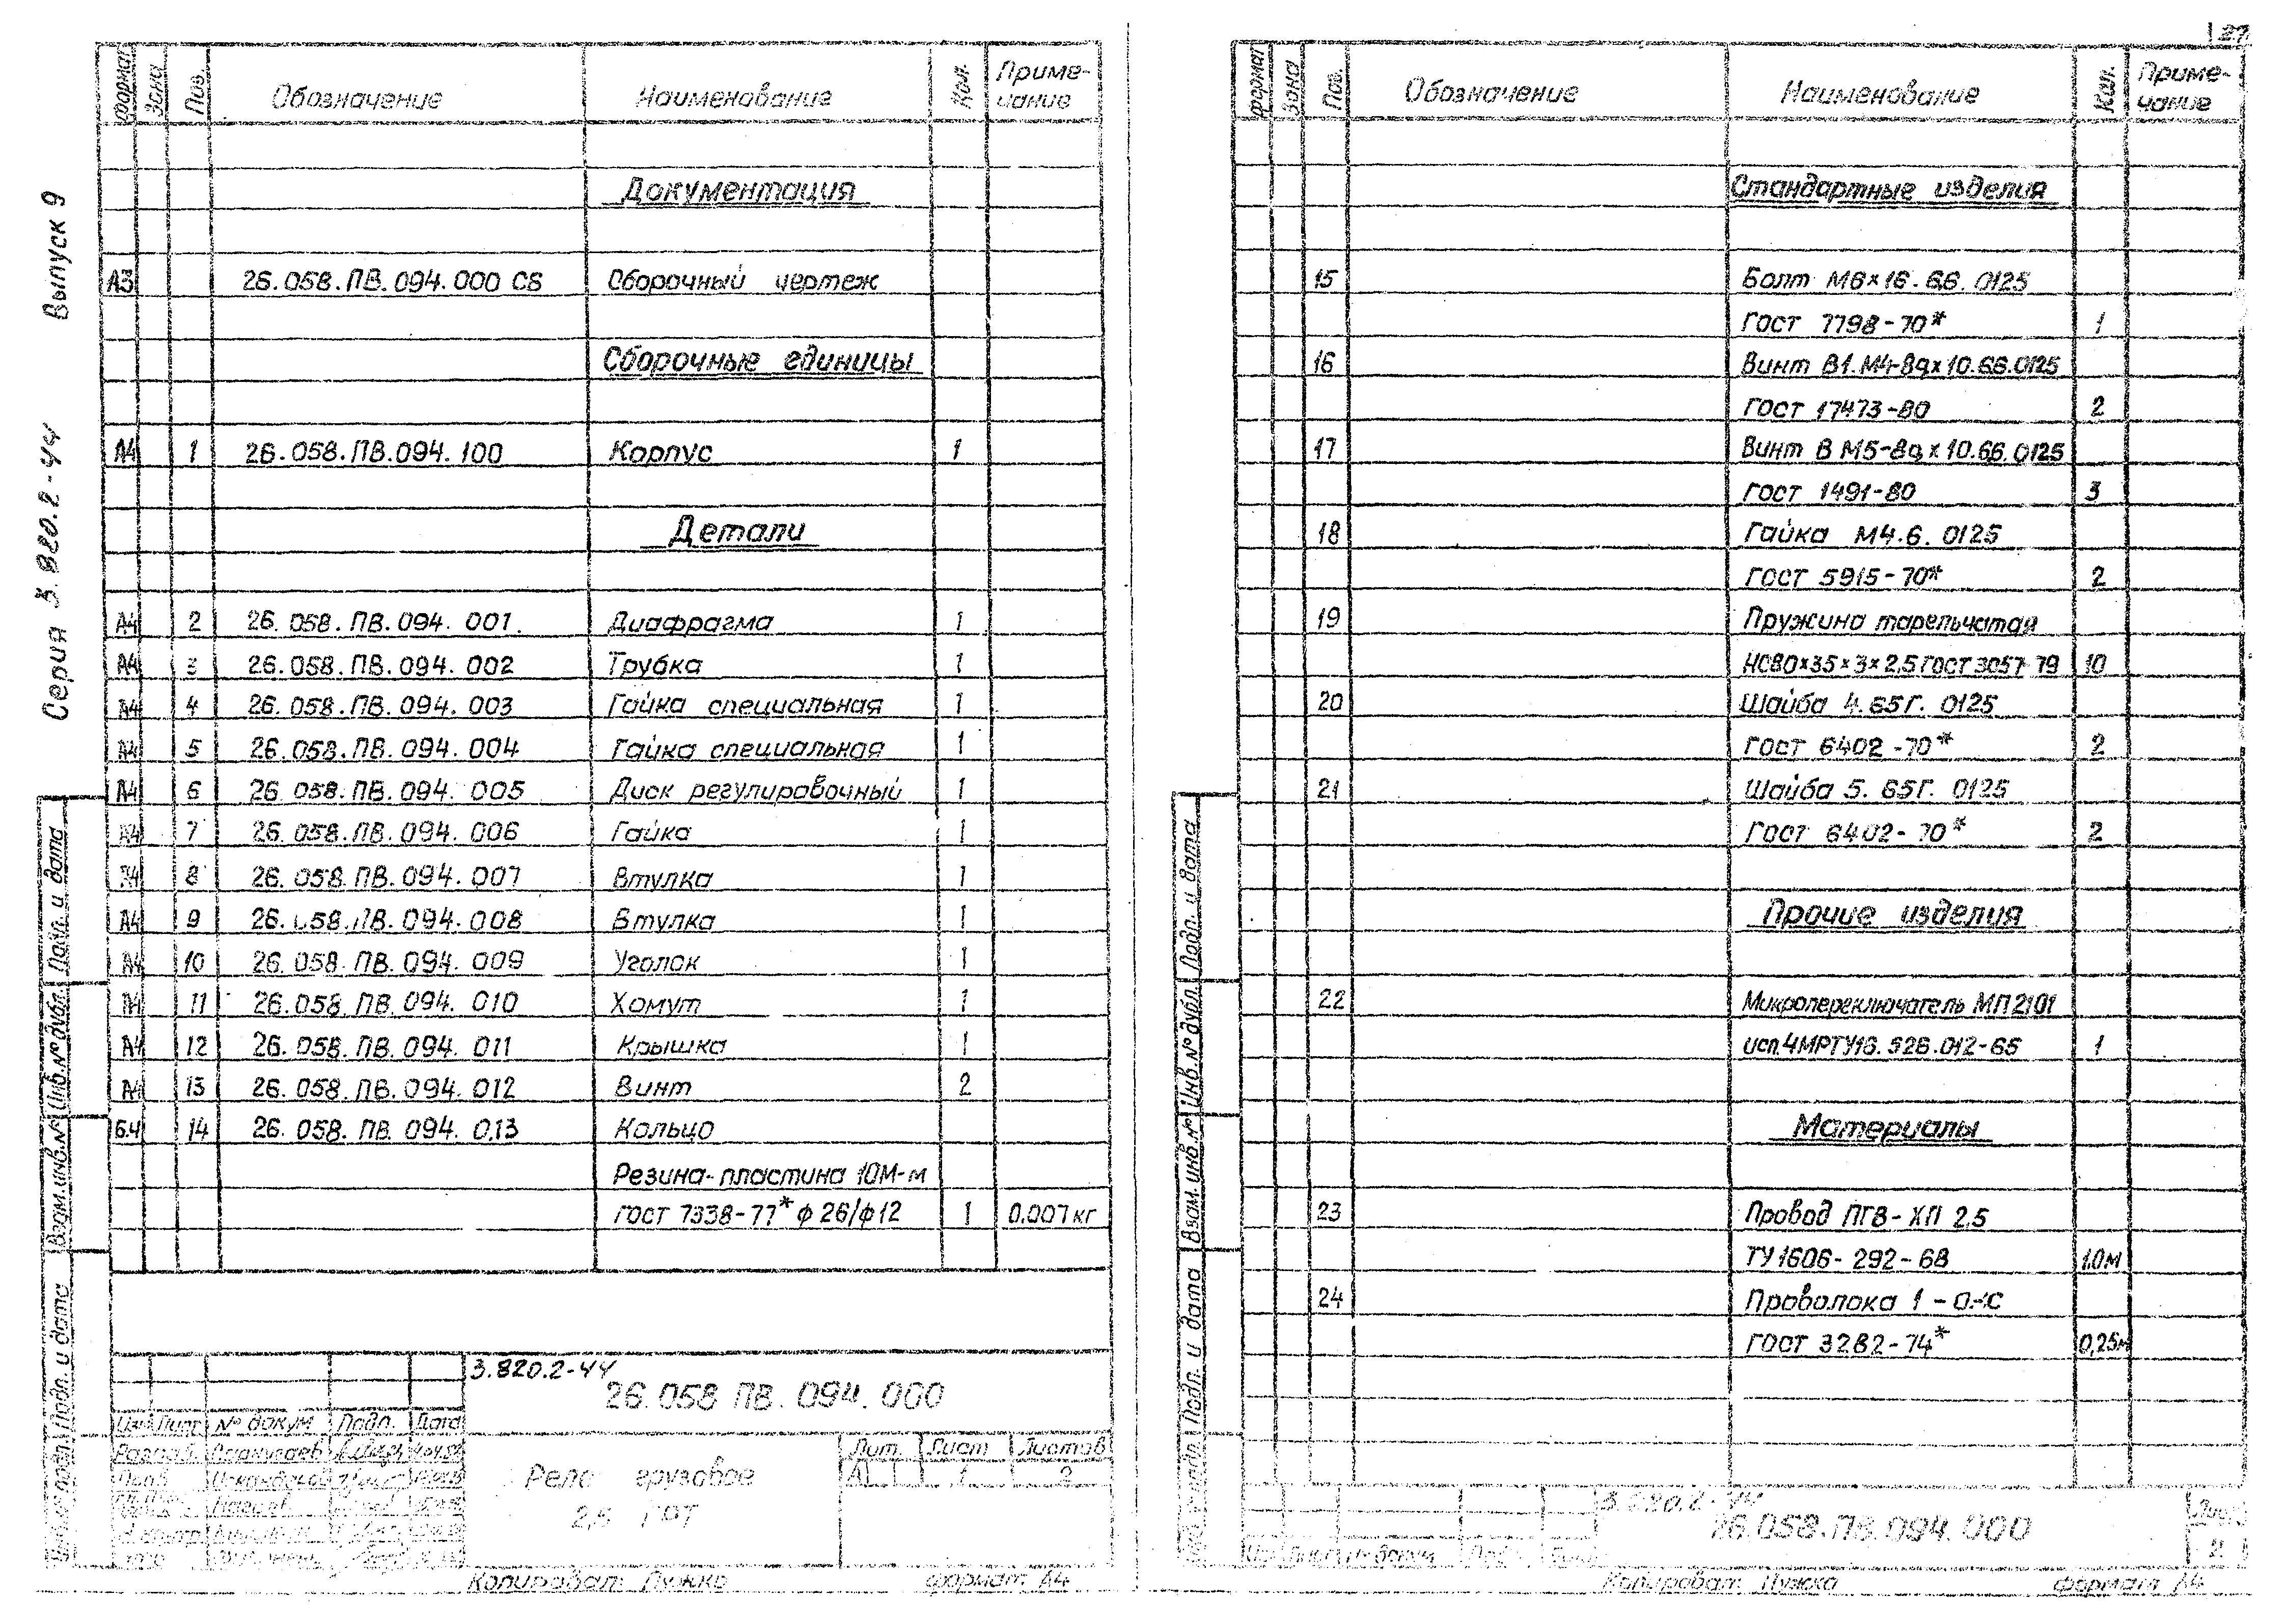 27
Серия 3.820.2-44 Выпуск 9
Формат Зона Поз. Обозначение Наименование Кол. Приме-
чание
Документация
А3 26.058.ПВ.094.000 СБ Сборочный чертеж
Сборочные единицы
А4 1 26.058.ПВ.094.100 Корпус 1
Детали
А4 2 26.058.ПВ.094.001 Диафрагма 1
А4 3 26.058.ПВ.094.002 Трубка 1
А4 4 26.058.ПВ.094.003 Гайка специальная 1
А4 5 26.058.ПВ.094.004 Гайка специальная 1
А4 6 26.058.ПВ.094.005 Диск регулировочный 1
А4 7 26.058.ПВ.094.006 Гайка 1
А4 8 26.058.ПВ.094.007 Втулка 1
А4 9 26.058.ПВ.094.008 Втулка 1
А4 10 26.058.ПВ.094.009 Уголок 1
А4 11 26.058.ПВ.094.010 Хомут 1
А4 12 26.058.ПВ.094.011 Крышка 1
А4 13 26.058.ПВ.094.012 Винт 2
Б.Ч 14 26.058.ПВ.094.013 Кольцо
Резина-пластина 10М-м
ГОСТ 7338-77* ф 26/ф12 1 0.007 кг
Подп. и дата
Инв.№ дубл.
Взам.инв.№
Подп. и дата
3.820.2-44
26.058 ПВ.094.000
Изм Лист № докум Подп. Дата
Разраб.
Реле грузовое
2,5 ГРТ
Лит. Лист Листов
А 1 2
Копировал: Пужко формат А4
Формат Зона Поз. Обозначение Наименование Кол. Приме-
чание
Стандартные изделия
15 Болт М6×16.6.6.0125
ГОСТ 7798-70* 1
16 Винт В1.М4-8g×10.6.6.0125
ГОСТ 17473-80 2
17 Винт В М5-8g×10.6.6.0125
ГОСТ 1491-80 3
18 Гайка М4.6.0125
ГОСТ 5915-70* 2
19 Пружина тарельчатая
НС80×35×3×2,5 ГОСТ 3057-79 10
20 Шайба 4.65Г.0125
ГОСТ 6402-70* 2
21 Шайба 5.65Г.0125
ГОСТ 6402-70* 2
Прочие изделия
22 Микропереключатель МП2101
исп.4МРТУ16.526.012-65 1
Материалы
23 Провод ПГВ-ХП 2.5
ТУ1606-292-68 1.0м
24 Проволока 1-О-С
ГОСТ 3282-74* 0,25м
Подп. и дата
Инв.№ дубл.
Взам.инв.№
Подп. и дата
3.820.2-44
26.058.ПВ.094.000
Лист
2
Копировал: Пужко формат А4